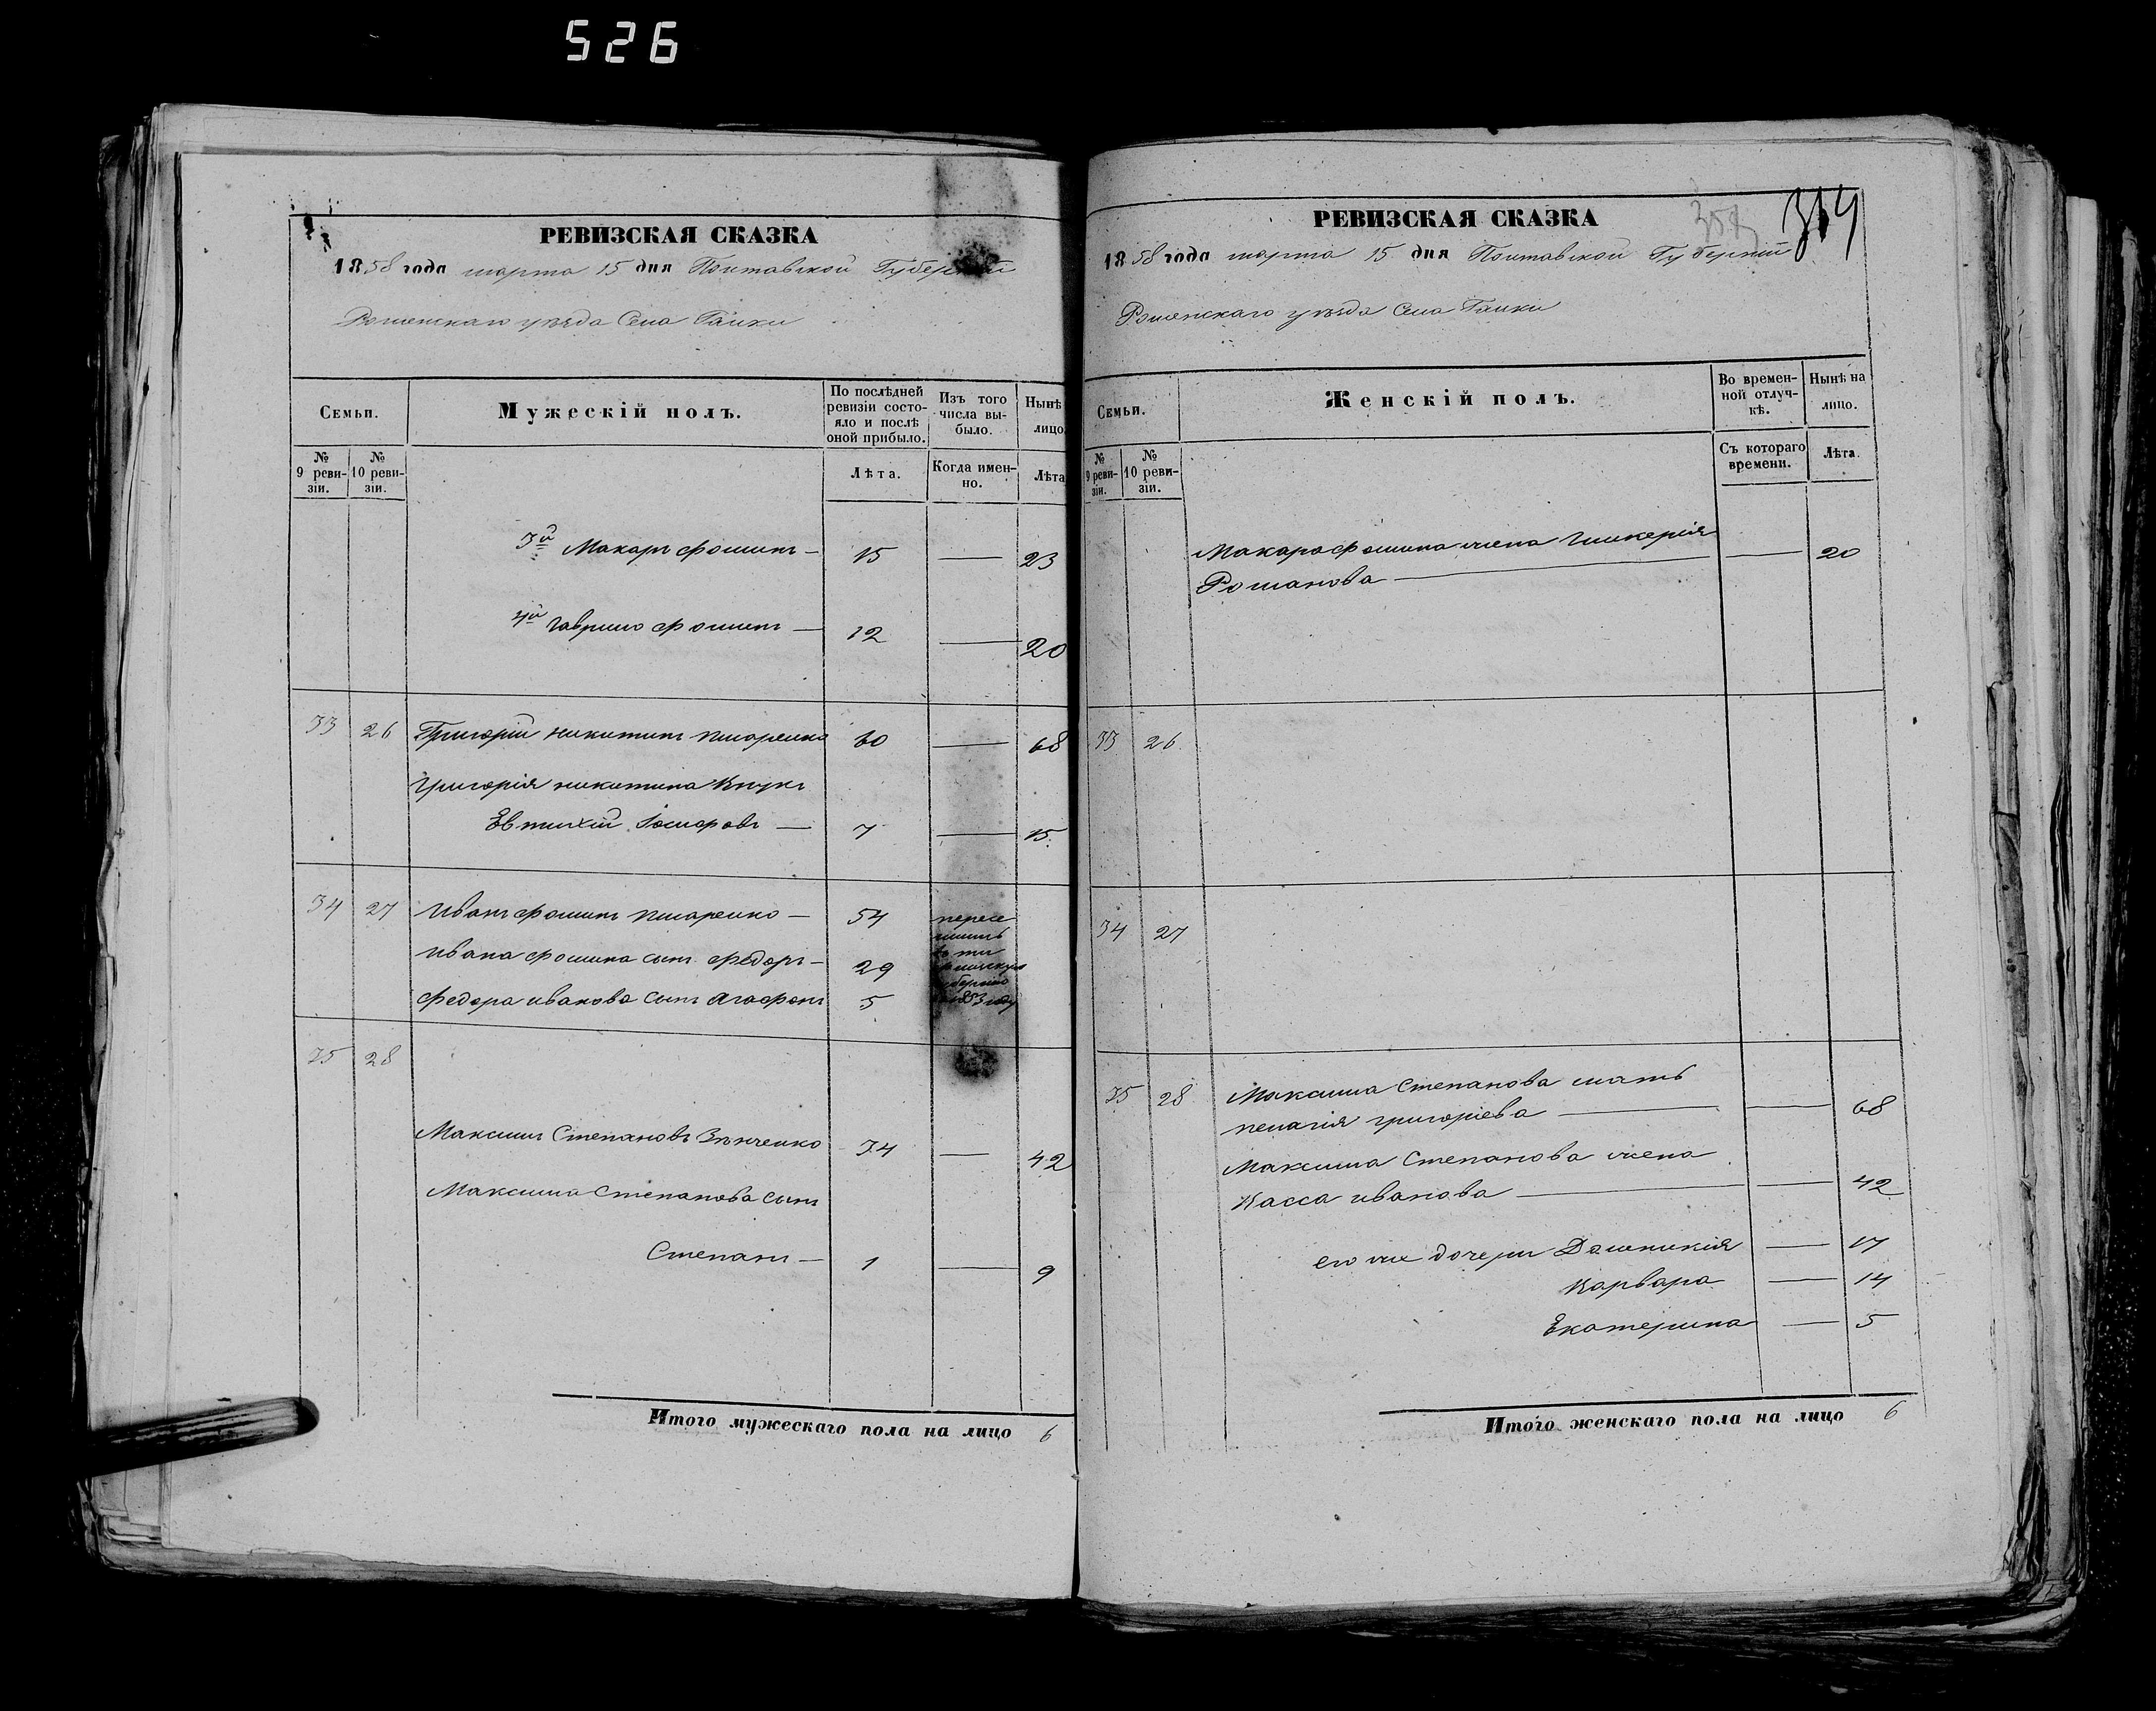 526
РЕВИЗСКАЯ СКАЗКА
1858 года марта 15 дня Полтавской Губерніи
Роменскаго уѣзда Села Галки
Семьи.
Мужескій полъ.
По послѣдней ревизіи состояло и послѣ оной прибыло.
Изъ того числа выбыло.
Нынѣ
лицо
№ 9 ревизіи.
№ 10 ревизіи.
Лѣта.
Когда именно.
Лѣта
3й Макаръ Фоминъ — 15 — 23
4й Гаврило Фоминъ — 12 — 20
33 26 Григорій Никитинъ Писаренко 60 — 68
Григорія Никитина внукъ
Евтихій — 7 — 15.
34 27 Иванъ Фоминъ Писаренко — 54 пересе
Ивана Фомина сынъ Федоръ — 29
Федора Иванова сынъ Агафонъ 5 1853 году
35 28
Максимъ Степановъ 34 — 42
Максима Степанова сынъ
Степанъ — 1 — 9
Итого мужескаго пола на лицо 6
РЕВИЗСКАЯ СКАЗКА
314
1858 года марта 15 дня Полтавской Губерніи
Роменскаго уѣзда Села Галки
Семьи.
Женскій полъ.
Во временной отлучкѣ.
Нынѣ на лицо.
№ 9 ревизіи.
№ 10 ревизіи.
Съ котораго времени.
Лѣта.
Макара Фомина жена Гликерія
Романова — — 20
33 26
34 27
35 28 Максима Степанова мать
Пелагія Григоріева — — 68
Максима Степанова жена
Васса Иванова — — 42
его же дочери Домникія — 17
Варвара — 14
Екатерина — 5
Итого женскаго пола на лицо 6